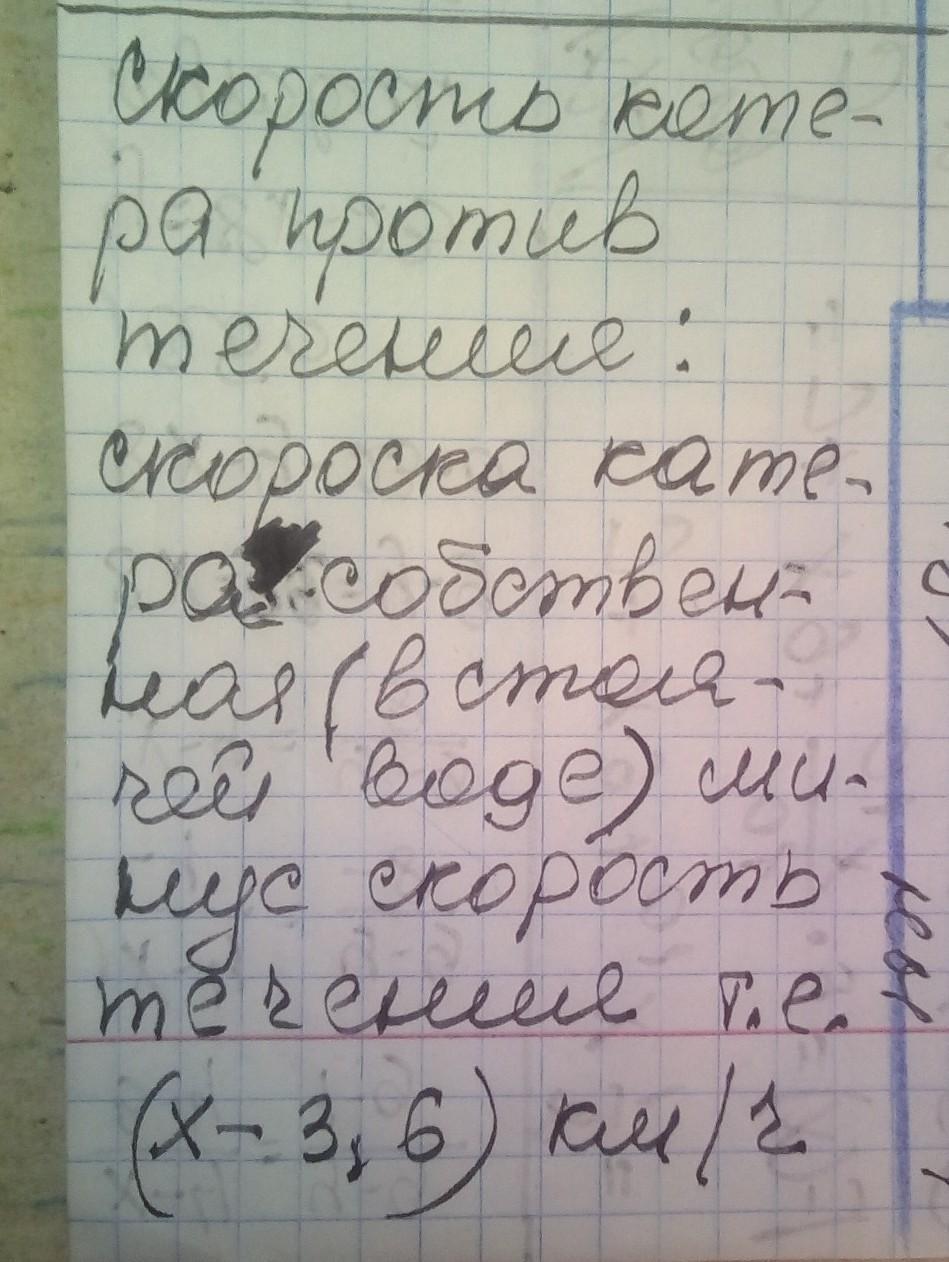 скорость кате-
ра против
течения:
скороска кате-
ра собствен-
ная (в стоя-
чей воде) ми-
нус скорость
течения т.е.
(х - 3,6) км/ч